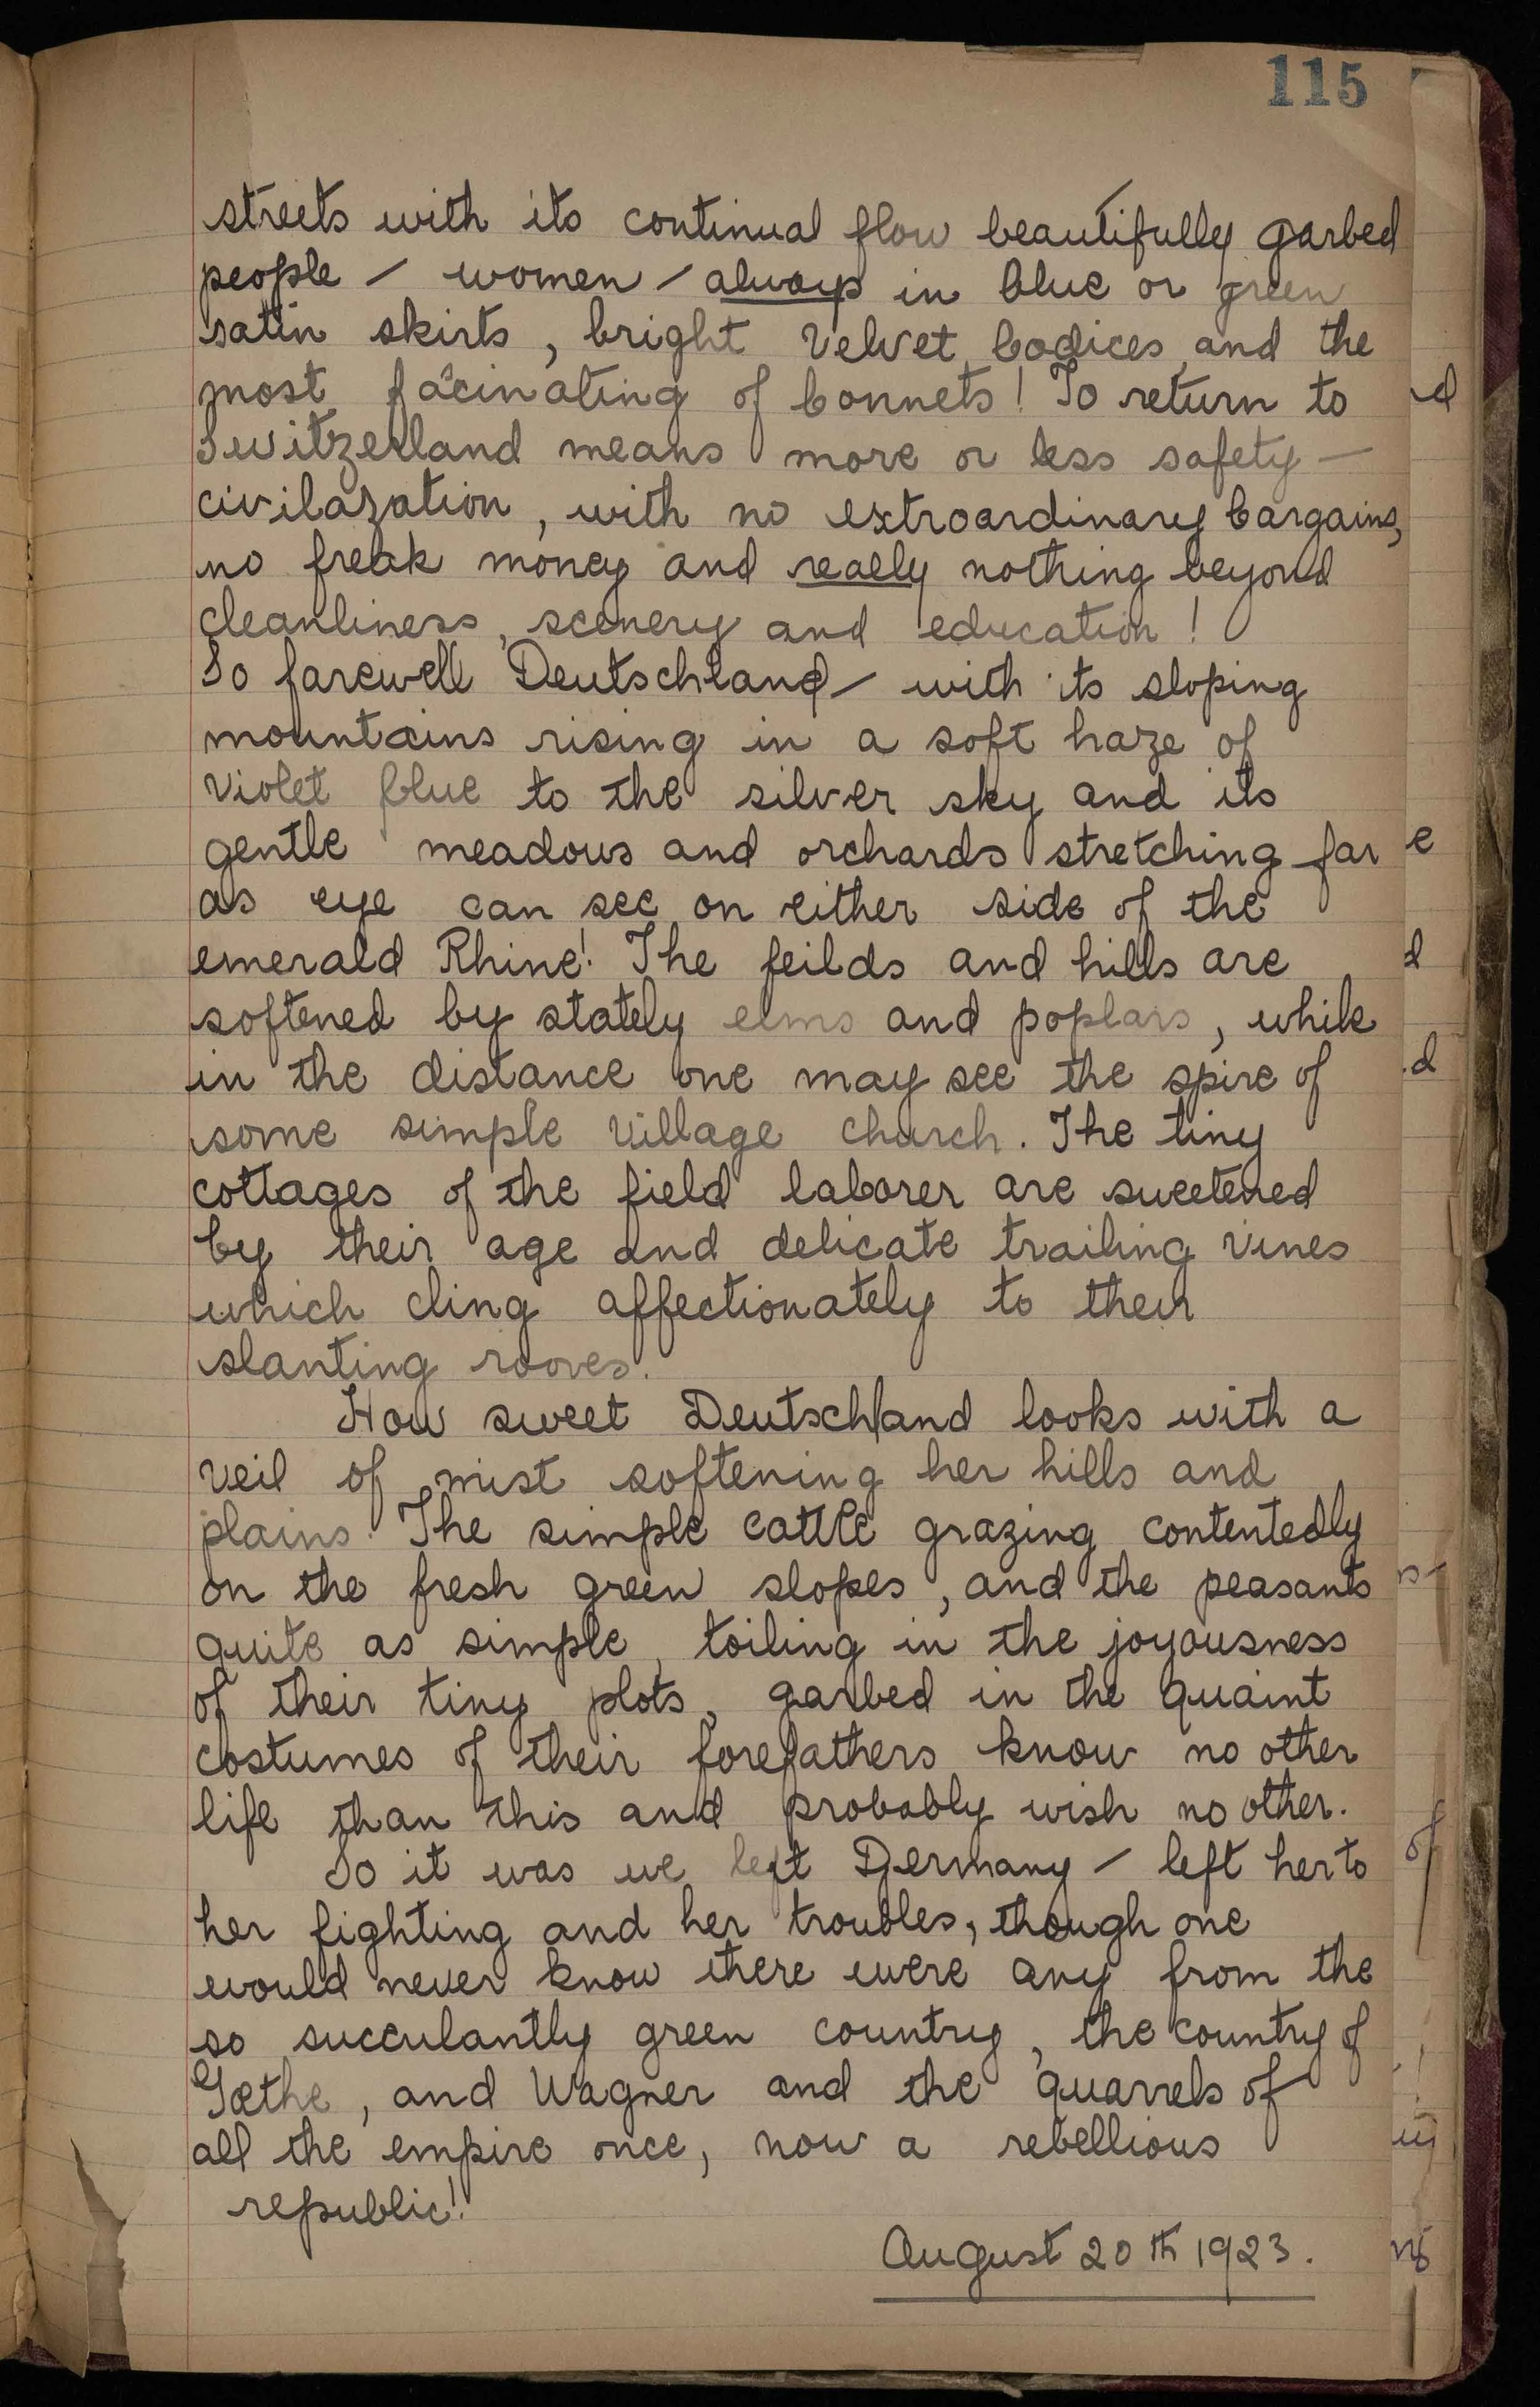 115
streets with its continual flow beautifully garbed
people – women – always in blue or green
satin skirts, bright velvet bodices and the
most facinating of bonnets! To return to
Switzerland means more or less safety –
civilazation, with no extroardinary bargains,
no freak money and really nothing beyond
cleanliness, scenery and education!
So farewell Deutschland – with its sloping
mountains rising in a soft haze of
violet blue to the silver sky and its
gentle meadows and orchards stretching far
as eye can see on either side of the
emerald Rhine! The feilds and hills are
softened by stately elms and poplars, while
in the distance one may see the spire of
some simple village church. The tiny
cottages of the field laborer are sweetened
by their age and delicate trailing vines
which cling affectionately to their
slanting rooves.
How sweet Deutschland looks with a
veil of mist softening her hills and
plains. The simple cattle grazing contentedly
on the fresh green slopes, and the peasants
quite as simple, toiling in the joyousness
of their tiny plots, garbed in the quaint
costumes of their forefathers know no other
life than this and probably wish no other.
So it was we left Germany – left her to
her fighting and her troubles, though one
would never know there were any from the
so succulantly green country, the country of
Gœthe, and Wagner and the quarrels of
all the empire once, now a rebellious
republic!
August 20th 1923.